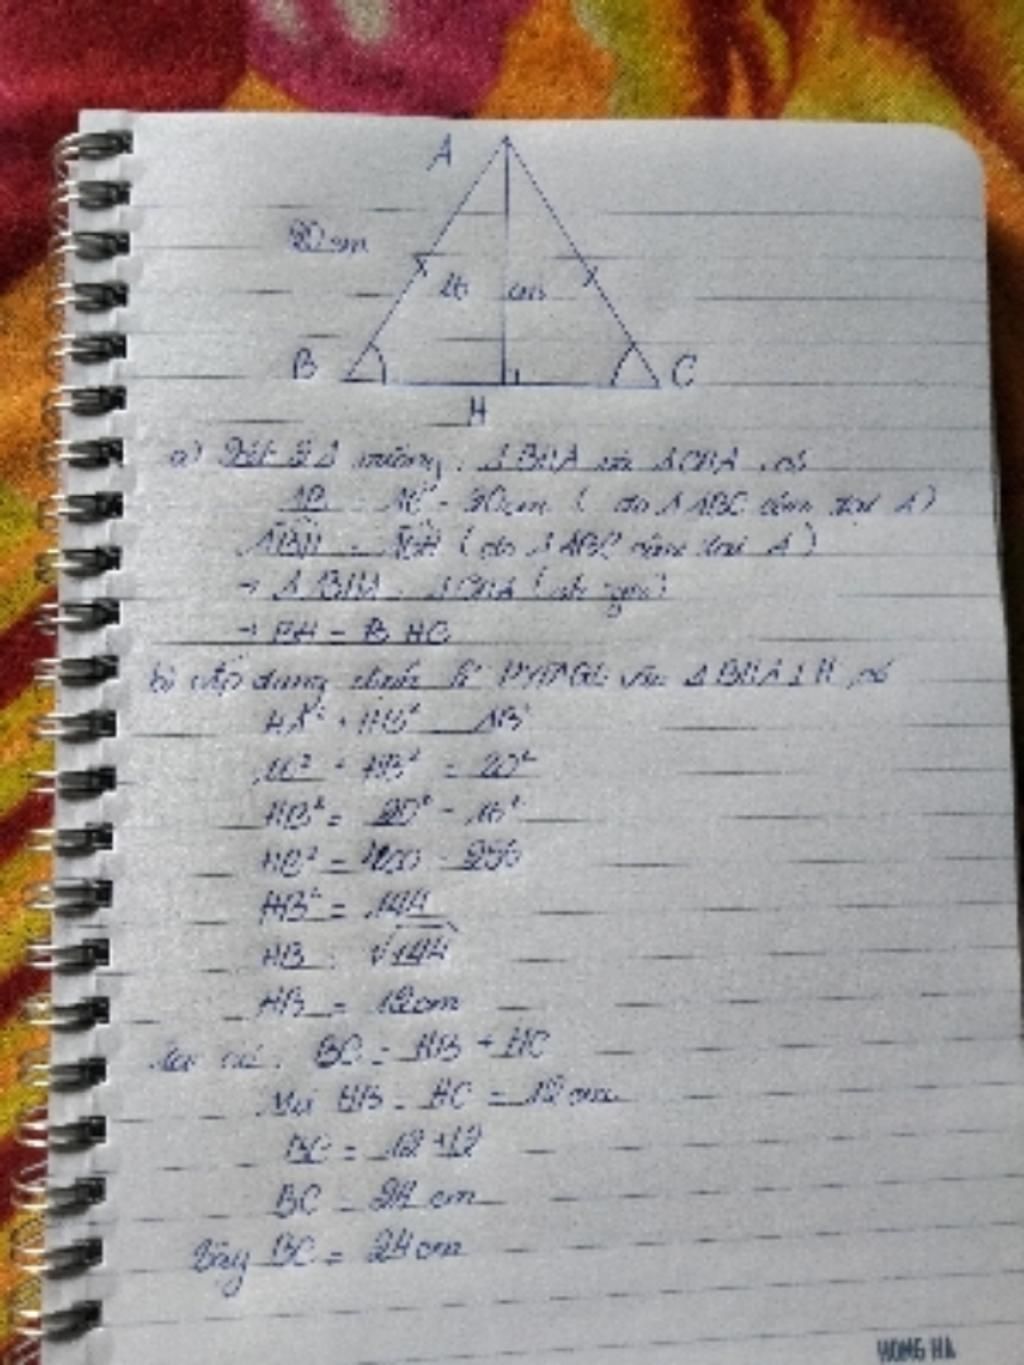 A
20 cm
16 cm
B
C
H
a) Xét 2 Δ vuông: Δ BHA và Δ CHA, có
AB = AC = 20cm ( do Δ ABC cân tại A)
ABH = ACH ( do Δ ABC cân tại A )
→ Δ BHA = Δ CHA
→ BH = B HC
b) Áp dụng định lí PYTAGO vào Δ BHA ⊥ H, có
HA² + HB² = AB²
16² + HB² = 20²
HB² = 20² - 16²
HB² = 400 - 256
HB² = 144
HB = √144
HB = 12cm
Ta có: BC = HB + HC
Mà HB = HC = 12 cm
BC = 12 + 12
BC = 24 cm
Vậy BC = 24 cm
HONG HA